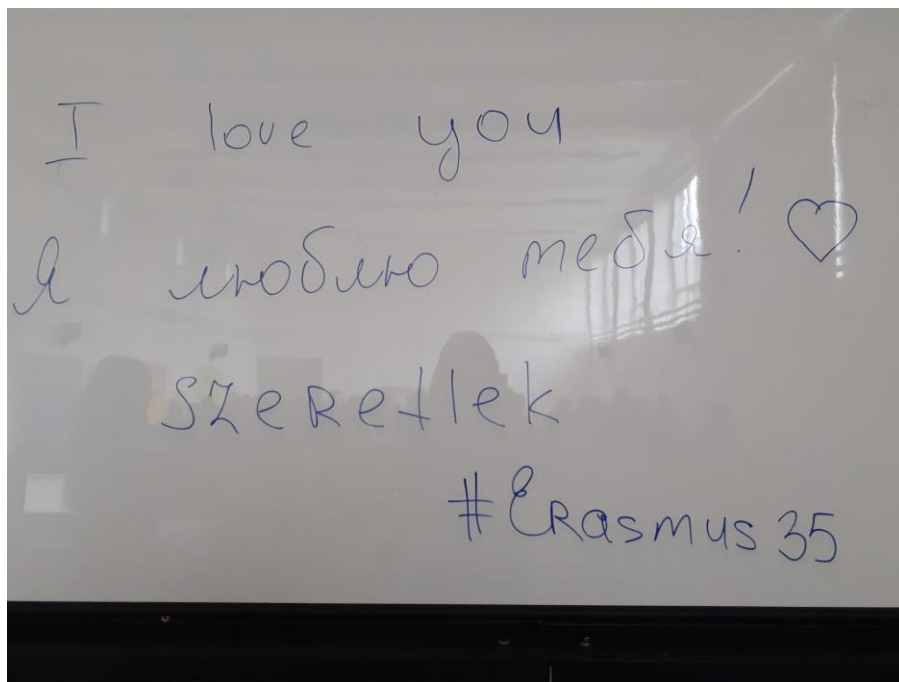 I love you
Я люблю тебя! ♡
szeretlek
#Erasmus 35